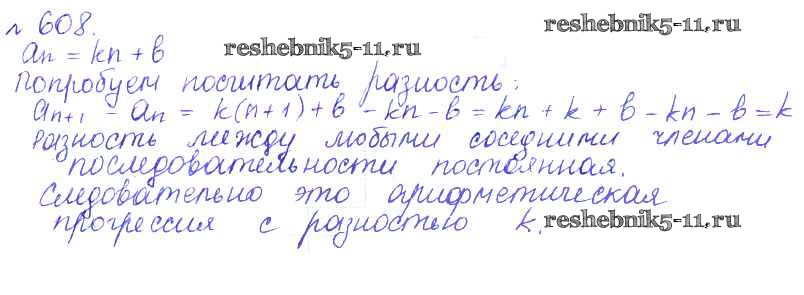 № 608.
reshebnik5-11.ru
an = kn + b
reshebnik5-11.ru
Попробуем посчитать разность:
an+1 - an = k(n+1) + b - kn - b = kn + k + b - kn - b = k
Разность между любыми соседними членами
последовательности постоянная.
Следовательно это арифметическая
прогрессия с разностью k.
reshebnik5-11.ru